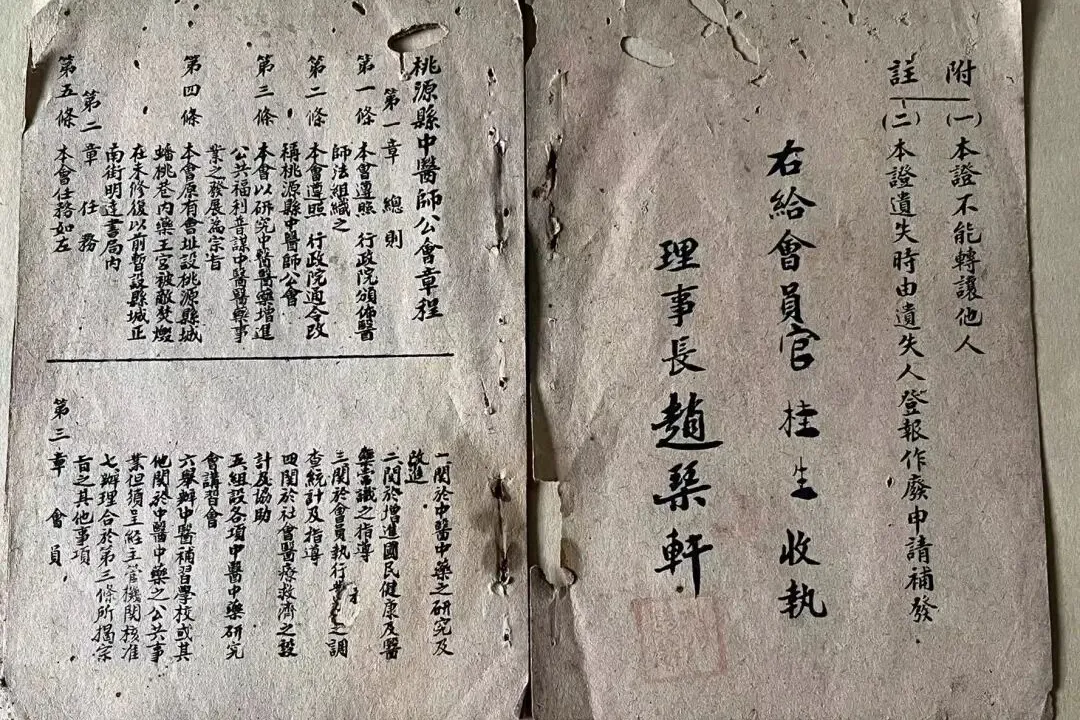 附註
(一)本證不能轉讓他人
(二)本證遺失時由遺失人登報作廢申請補發
右給會員官桂生收執
理事長趙琹軒
桃源縣中醫師公會章程
第一章 總則
第一條 本會遵照 行政院頒佈醫
師法組織之
第二條 本會遵照 行政院通令改
稱桃源縣中醫師公會
第三條 本會以研究中醫醫藥增進
公共福利普謀中醫醫藥事
業之發展為宗旨
第四條 本會原有會址設桃源縣城
蟠桃巷內藥王宮被敵焚燬
在未修復以前暫設縣城正
南街明達書局內
第二章 任務
第五條 本會任務如左
一關於中醫中藥之研究及
改進
二關於增進國民健康及醫
藥常識之指導
三關於會員執行業之調
查統計及指導
四關於社會醫療救濟之設
計及協助
五組設各項中醫中藥研究
會講習會
六舉辦中醫補習學校或其
他關於中醫中藥之公共事
業但須呈經主管機関核准
七辦理合於第三條所揭宗
旨之其他事項
第三章 會員